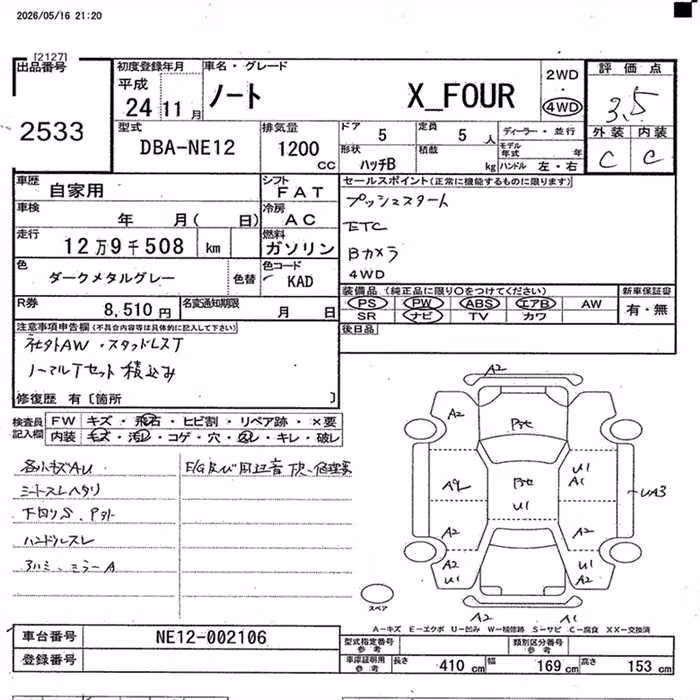 2026/05/16 21:20
[2127]
出品番号
2533
初度登録年月
平成
24 11 月
車名・グレード
ノート X_FOUR
2WD
4WD
評価点
3.5
外装 内装
C C
型式
DBA-NE12
排気量
1200 CC
ドア 5
定員 5 人
形状 ハッチB
積載 kg
ディーラー・並行
モデル年式 年
ハンドル 左・右
車歴 自家用
シフト FAT
車検 年 月( 日)
冷房 AC
走行 12万9千508 km
燃料 ガソリン
色 ダークメタルグレー
色替
色コード KAD
R券 8,510 円
名変通知期限 月 日
セールスポイント(正常に機能するものに限ります)
プッシュスタート
ETC
Bカメラ
4WD
装備品 (純正品に限り○をつけてください)
新車保証書
PS PW ABS エアB AW
SR ナビ TV カワ
有・無
後日品
注意事項申告欄(不具合内容等は具体的に記入して下さい)
社外AW・スタッドレスT
ノーマルTセット積込み
修復歴 有〔箇所 〕
検査員記入欄
FW キズ・飛石・ヒビ割・リペア跡・×要
内装 キズ・汚レ・コゲ・穴・ ・キレ・破レ
各小キズAU
シートスレヘタリ
下回りS、
ハンドルスレ
アルミ、ミラーA
E/G及び周辺音
A2
A2
A2
U1
A1
UA3
U1
A2
A2
A2
U1
U1
A2
A2
A1
スペア
A-キズ E-エクボ U-凹み W-補修跡 S-サビ C-腐食 XX-交換済
車台番号 NE12-002106
登録番号
型式指定番号 参考
類別区分番号 参考
車庫証明用 参考 長さ 410 cm 幅 169 cm 高さ 153 cm